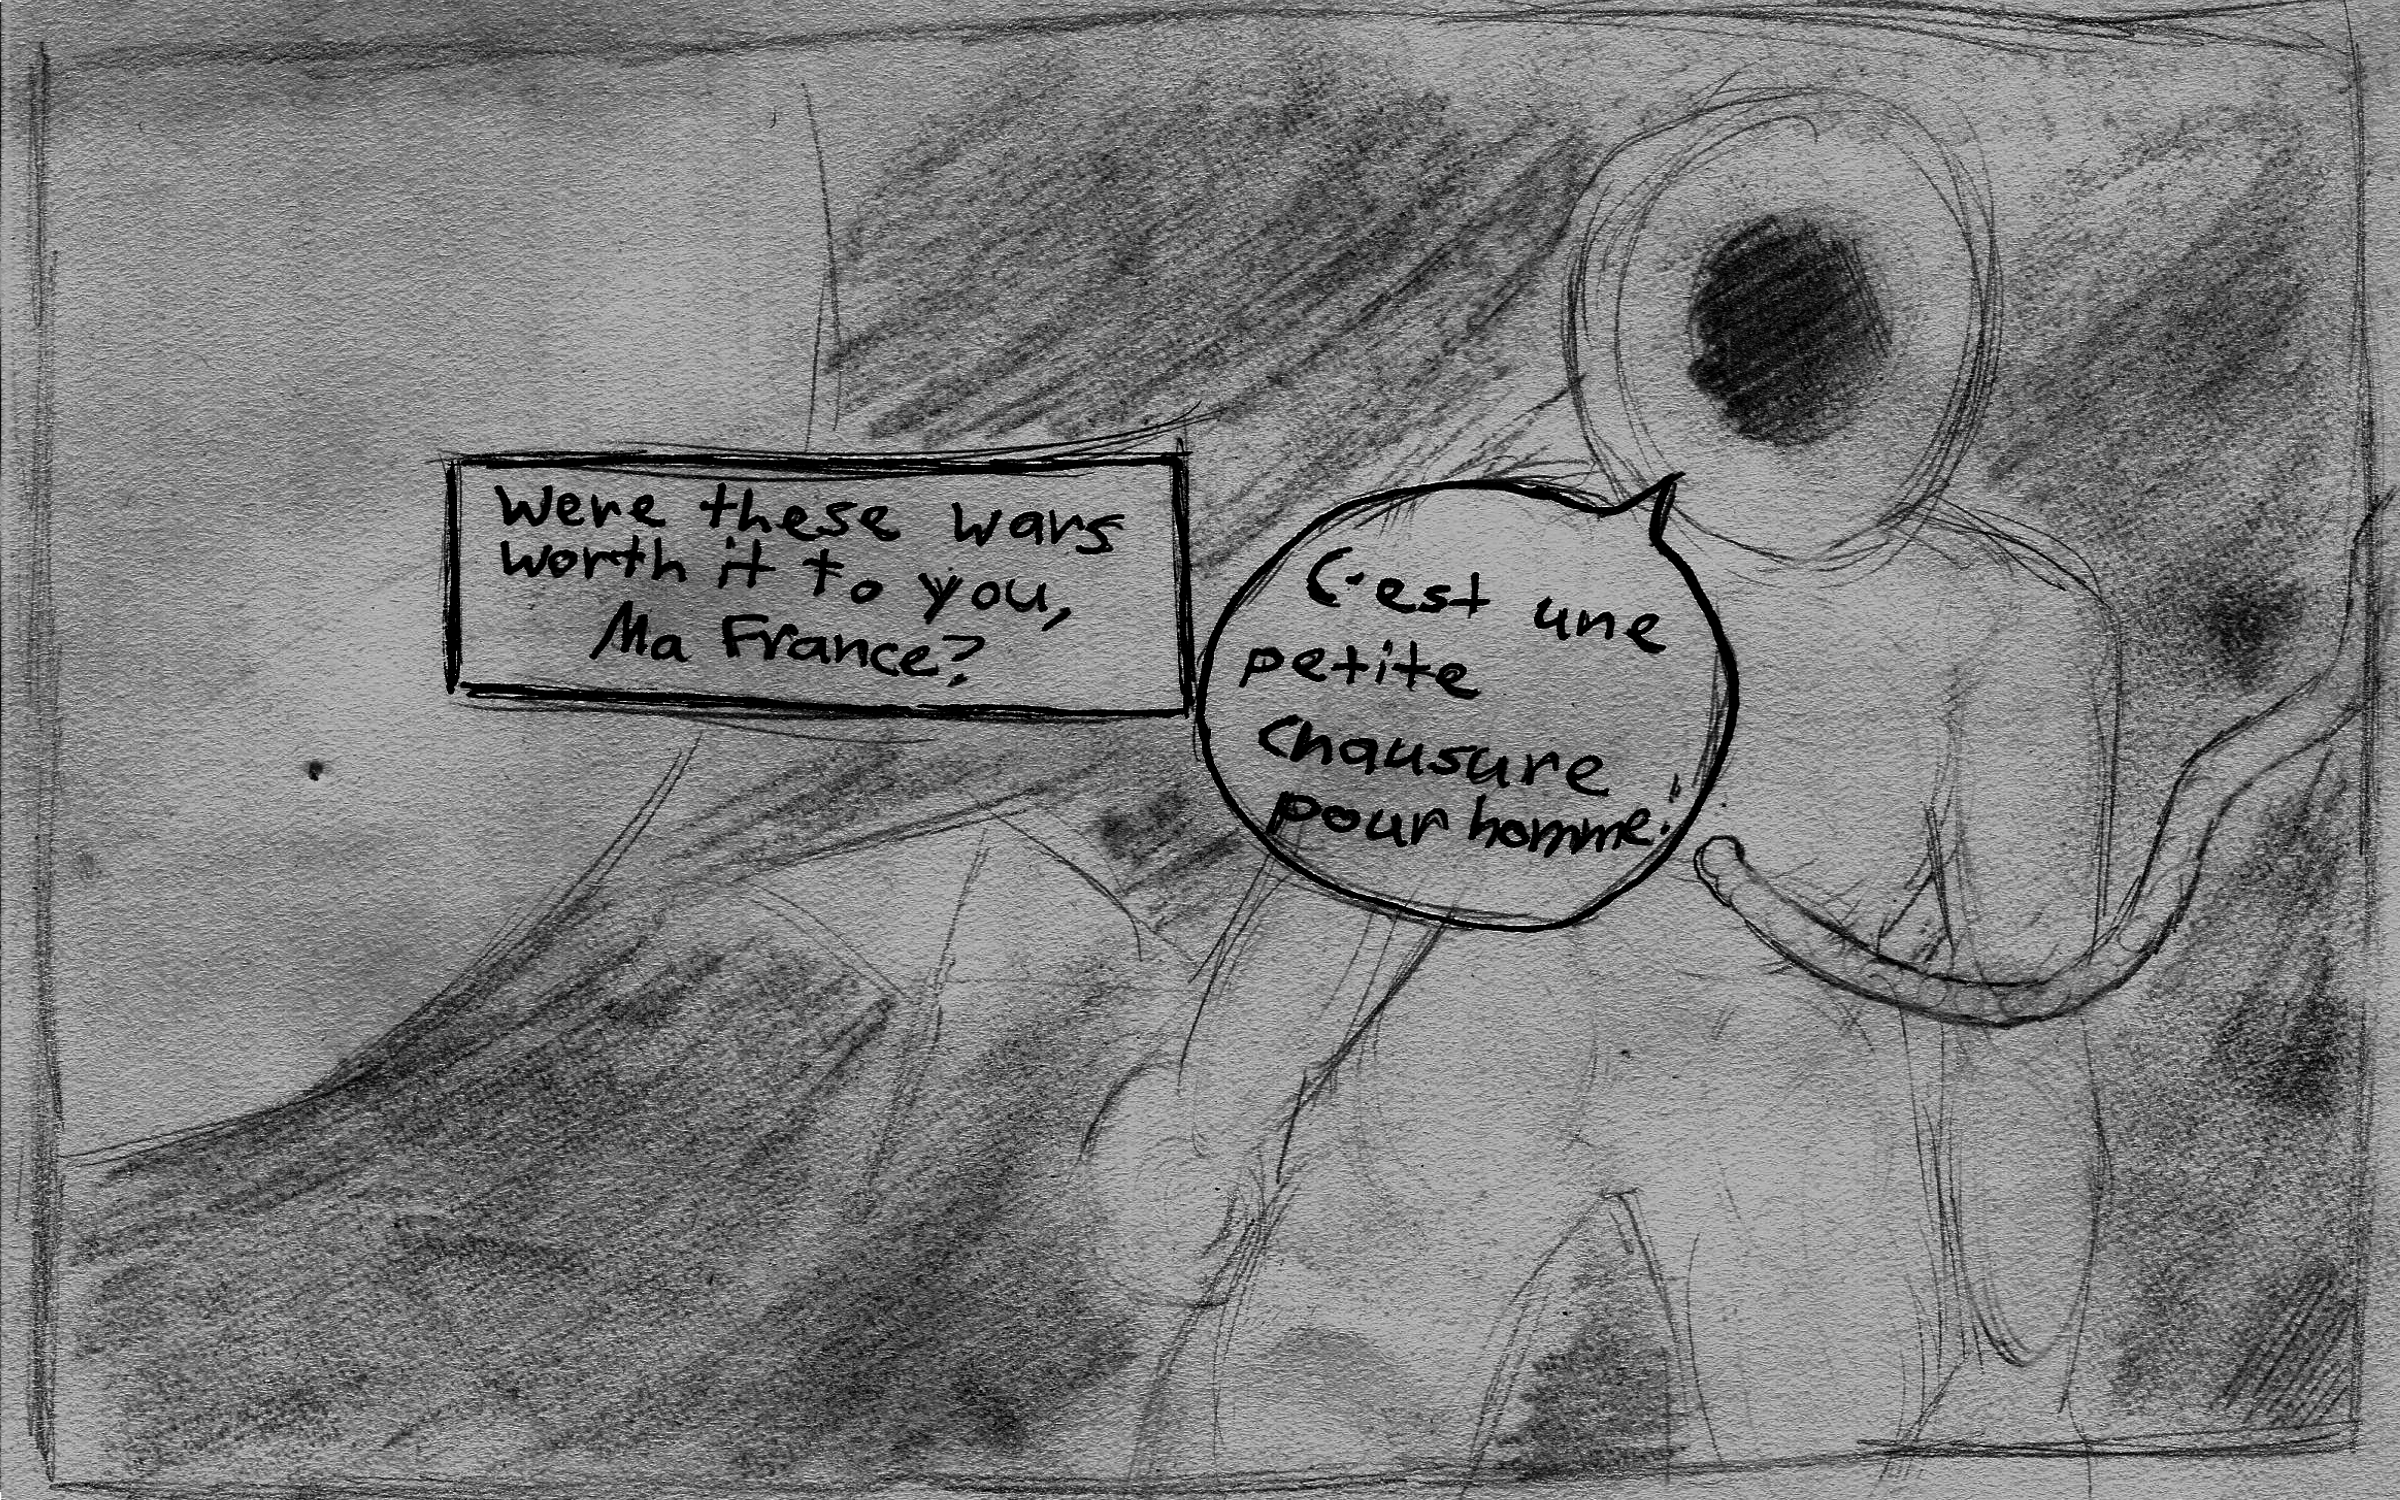 Were these wars
worth it to you,
Ma France?
C'est une
petite
chausure
pour homme!